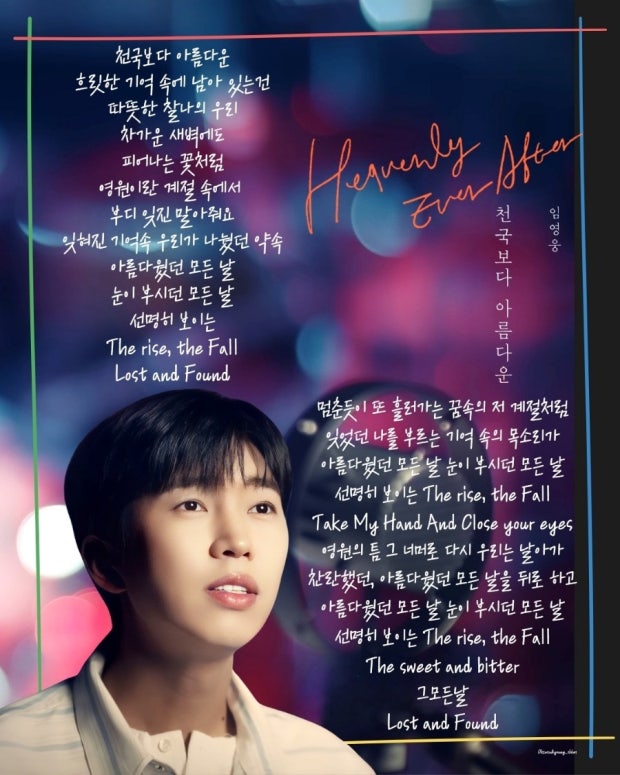 천국보다 아름다운
흐릿한 기억 속에 남아 있는건
따뜻한 찰나의 우리
차가운 새벽에도
피어나는 꽃처럼
영원이란 계절 속에서
부디 잊진 말아줘요
잊혀진 기억속 우리가 나눴던 약속
아름다웠던 모든 날
눈이 부시던 모든 날
선명히 보이는
The rise, the Fall
Lost and Found
Heavenly
Ever After
임영웅
천국보다 아름다운
멈춘듯이 또 흘러가는 꿈속의 저 계절처럼
잊었던 나를 부르는 기억 속의 목소리가
아름다웠던 모든 날 눈이 부시던 모든 날
선명히 보이는 The rise, the Fall
Take My Hand And Close your eyes
영원의 틈 그 너머로 다시 우리는 날아가
찬란했던, 아름다웠던 모든 날을 뒤로 하고
아름다웠던 모든 날 눈이 부시던 모든 날
선명히 보이는 The rise, the Fall
The sweet and bitter
그모든날
Lost and Found